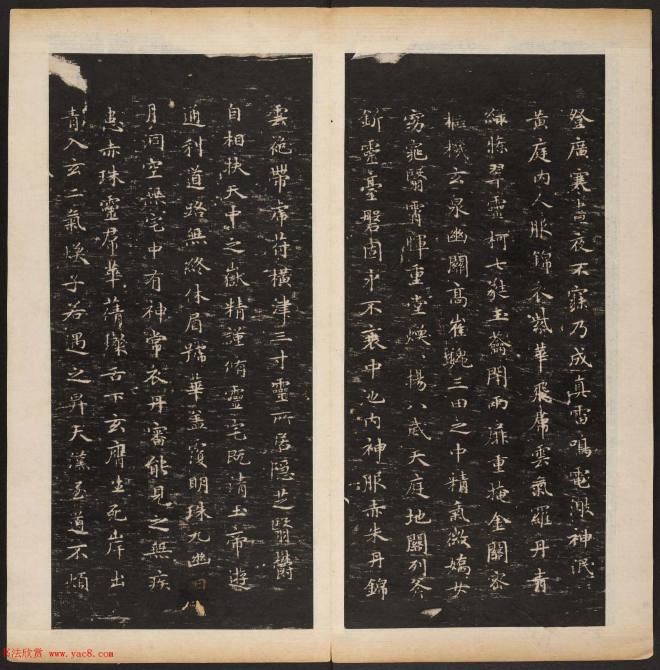 登廣襄書夜不寐乃成真雷鳴電激神泯
黃庭內人服錦衣紫華飛帬雲氣羅丹青
綠條翠靈柯七蕤玉籥閉兩扉重掩金關密
樞機玄泉幽關高崔巍三田之中精氣微嬌女
窈窕翳霄暉重堂煥々揚八威天庭地關列斧
斱靈臺磐固永不衰中池內神服赤朱丹錦
雲袍帶虎符橫津三寸靈所居隱芝翳鬱
自相扶天中之嶽精謹脩靈宅既清玉帝遊
通利道路無終休眉號華蓋覆明珠九幽日
月洞空無宅中有神常衣丹審能見之無疾
患赤珠靈帬華蒨粲舌下玄膺生死岸出
青入玄二氣煥子若遇之昇天漢至道不煩
书法欣赏 www.yac8.com